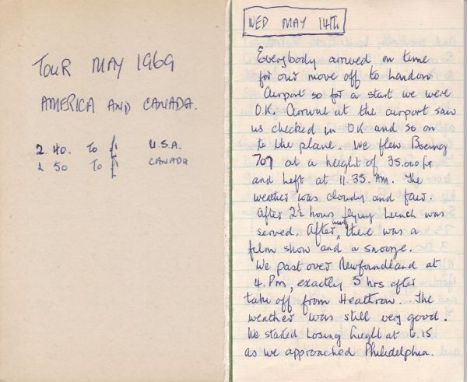 TOUR MAY 1969
AMERICA AND CANADA.
2.40. To £ U.S.A.
2 50 To £ CANADA
WED MAY 14TH
Everybody arrived on time
for our move off to London
Airport so for a start we were
O.K. Arrival at the airport saw
us checked in OK and so on
to the plane. We flew Boeing
707 at a height of 35.000 ft
and left at 11.35. AM. The
weather was cloudy and fair.
After 2½ hours flying lunch was
served. After, there was a
film show and a snooze.
We past over Newfoundland at
4. PM, exactly 5 hrs after
take off from Heathrow. The
weather was still very good.
We started losing height at 6.15
as we approached Philidelphia.